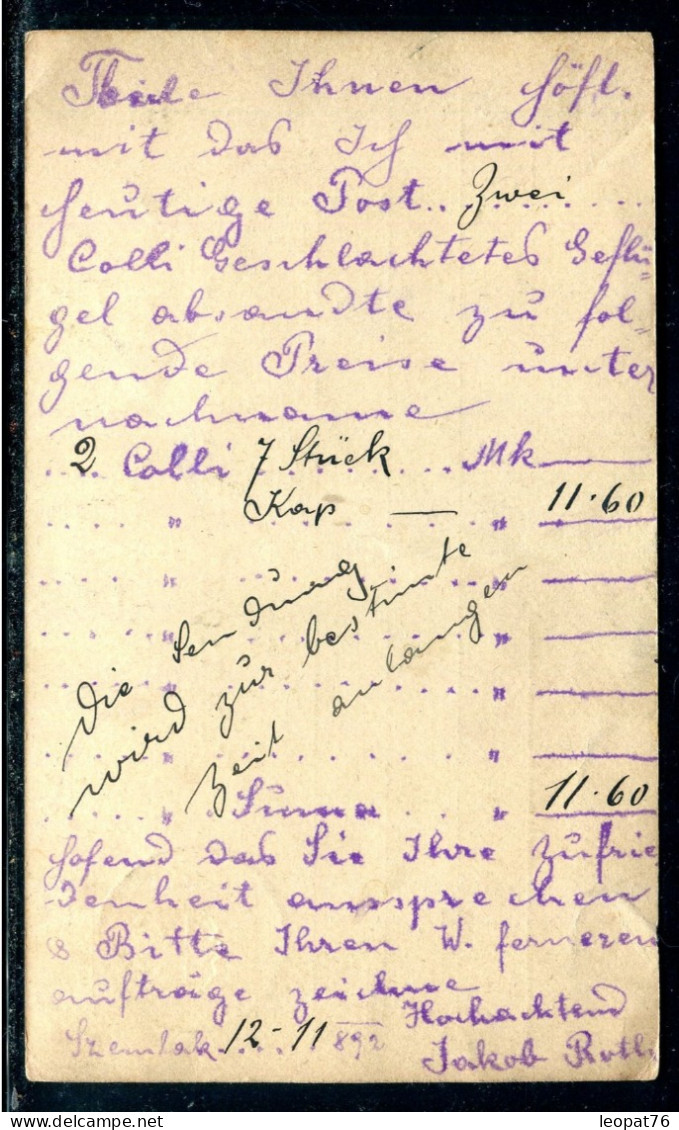 Theile Ihnen höfl.
mit das Ich mit
heutige Post.. Zwei
Colli Geschlachtetes Geflü-
gel absandte zu fol-
gende Preise unter
nachname
2 Colli 7 Stück Mk
" Kap — " 11.60
" "
" "
" "
" "
Die Sendung
wird zur bestimte
Zeit anlangen
" Suma " 11.60
hofend das Sie Ihre Zufrie
denheit aussprechen
& Bitte Ihren W. ferneren
aufträge zeichne
Hochachtend
Szemlak 12-11 892
Jakob Roth
leopat76